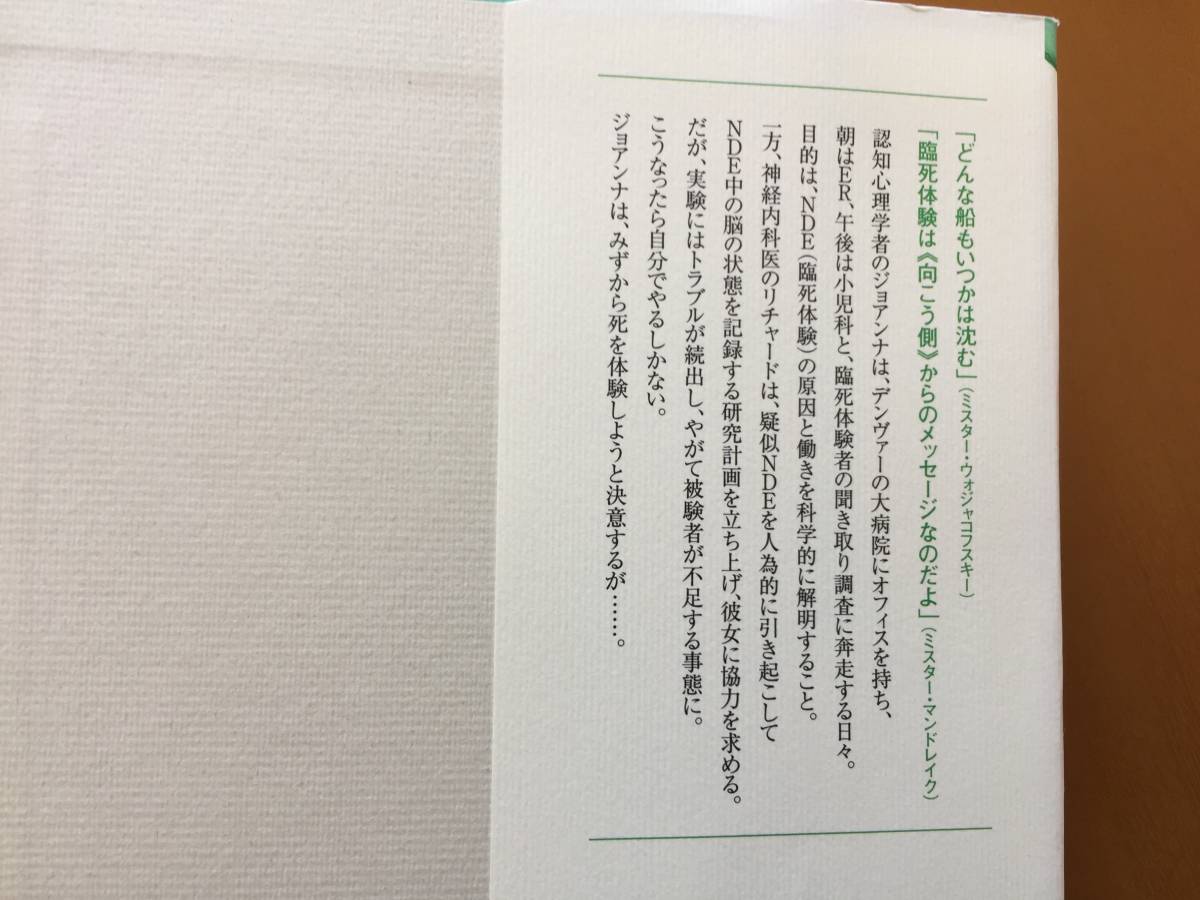 「どんな船もいつかは沈む」（ミスター・ウォジャコフスキー）
「臨死体験は《向こう側》からのメッセージなのだよ」（ミスター・マンドレイク）
認知心理学者のジョアンナは、デンヴァーの大病院にオフィスを持ち、
朝はER、午後は小児科と、臨死体験者の聞き取り調査に奔走する日々。
目的は、NDE（臨死体験）の原因と働きを科学的に解明すること。
一方、神経内科医のリチャードは、疑似NDEを人為的に引き起こして
NDE中の脳の状態を記録する研究計画を立ち上げ、彼女に協力を求める。
だが、実験にはトラブルが続出し、やがて被験者が不足する事態に。
こうなったら自分でやるしかない。
ジョアンナは、みずから死を体験しようと決意するが……。